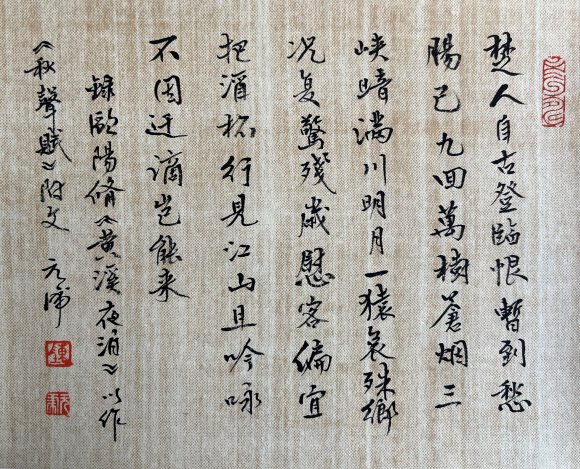 楚人自古登臨恨暫到愁
腸已九回萬樹蒼烟三
峽暗滿川明月一猿哀殊鄉
况复驚殘歲慰客偏宜
把酒杯行見江山且吟咏
不因迁謫岂能来
録歐陽脩《黄溪夜泊》以作
《秋聲賦》附文 元沛